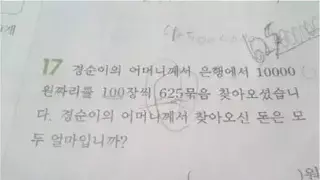 17 경순이의 어머니께서 은행에서 10000
원짜리를 100장씩 625묶음 찾아오셨습니
다. 경순이의 어머니께서 찾아오신 돈은 모
두 얼마입니까?
( )원